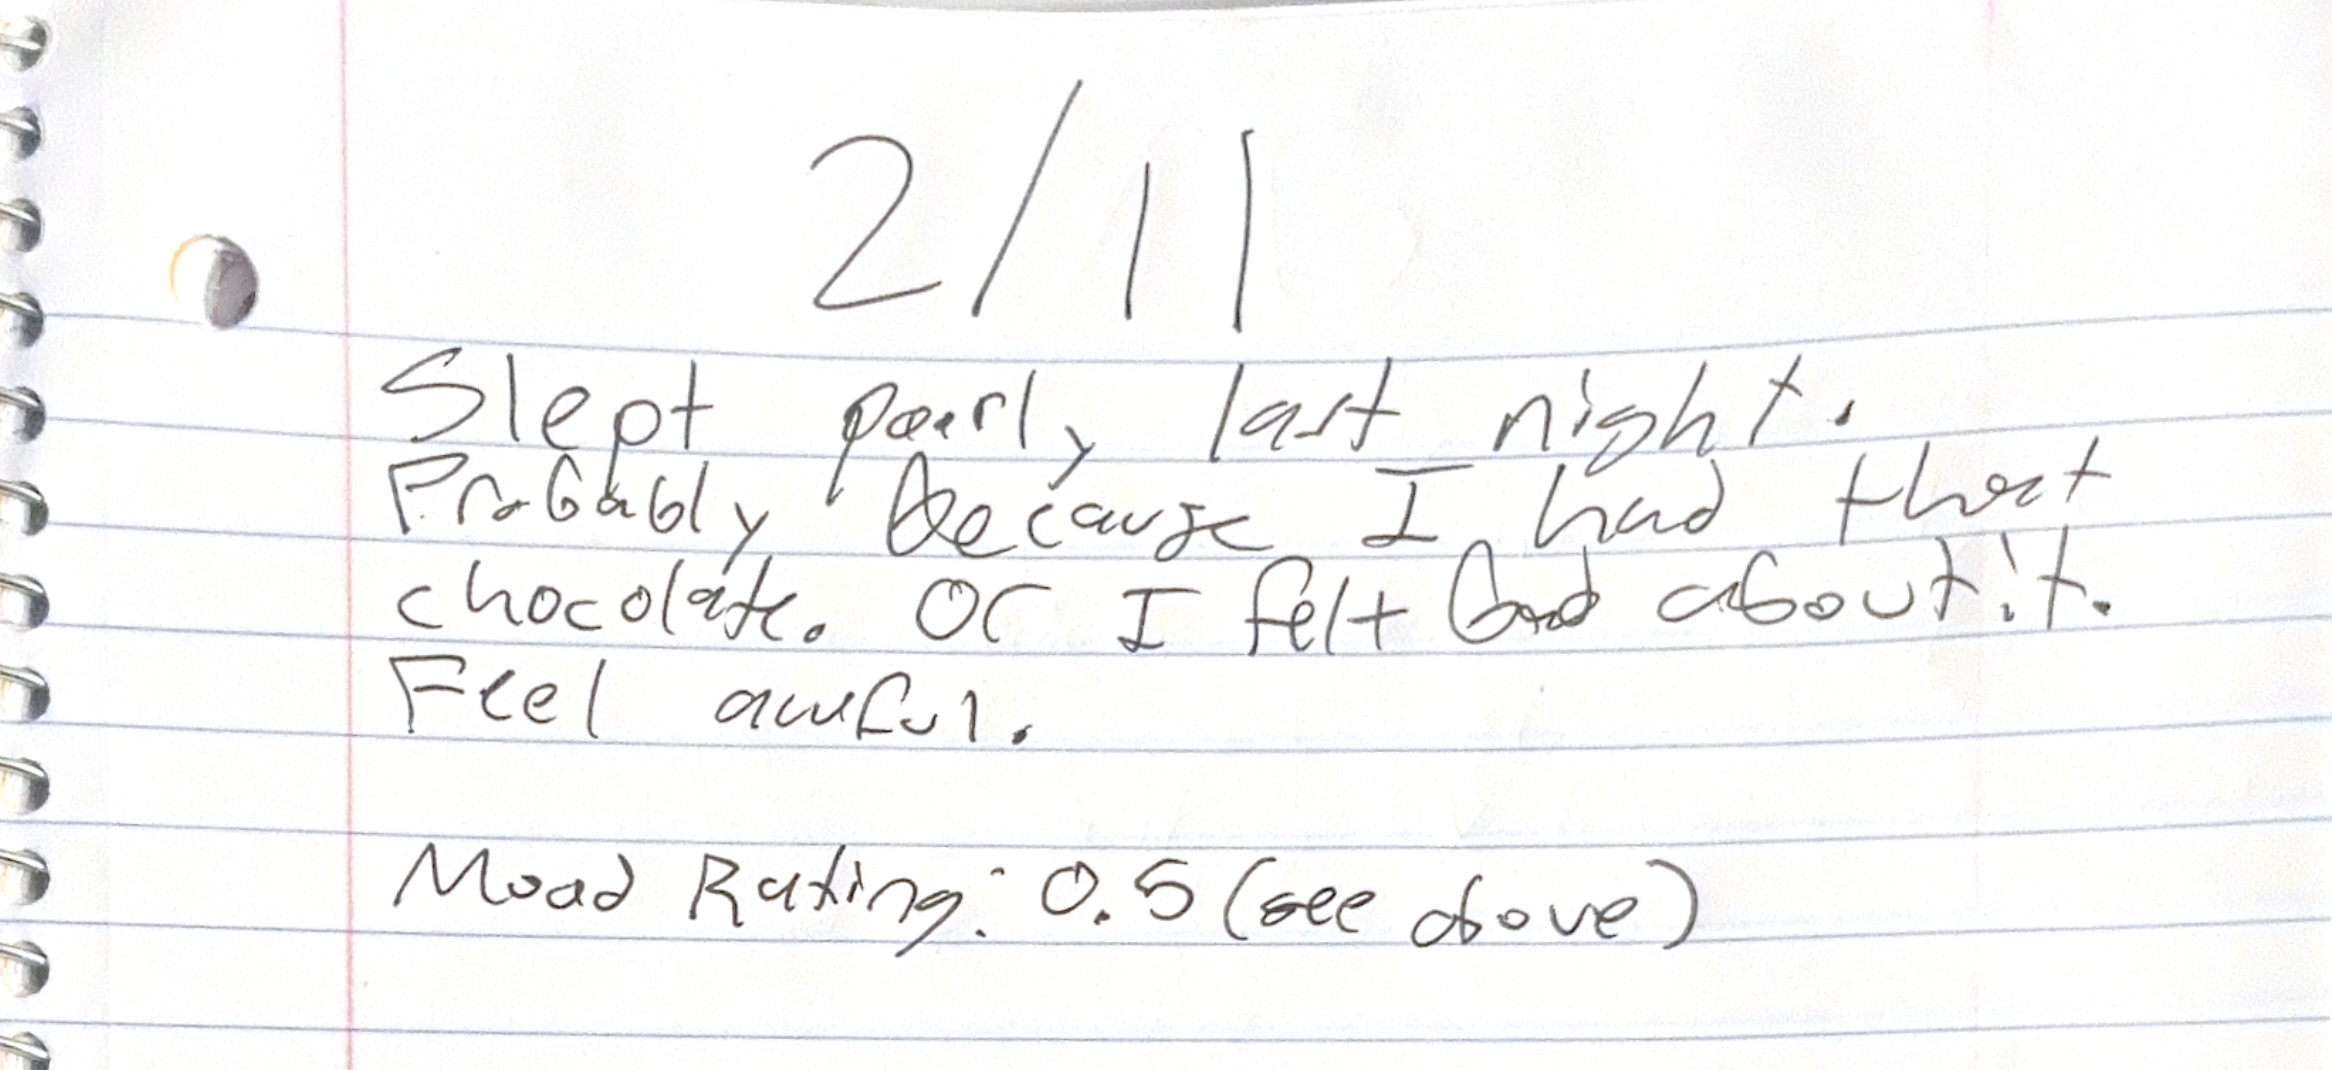 2/11
Slept poorly last night.
Probably because I had that
chocolate. Or I felt bad about it.
Feel awful.
Mood Rating: 0.5 (see above)